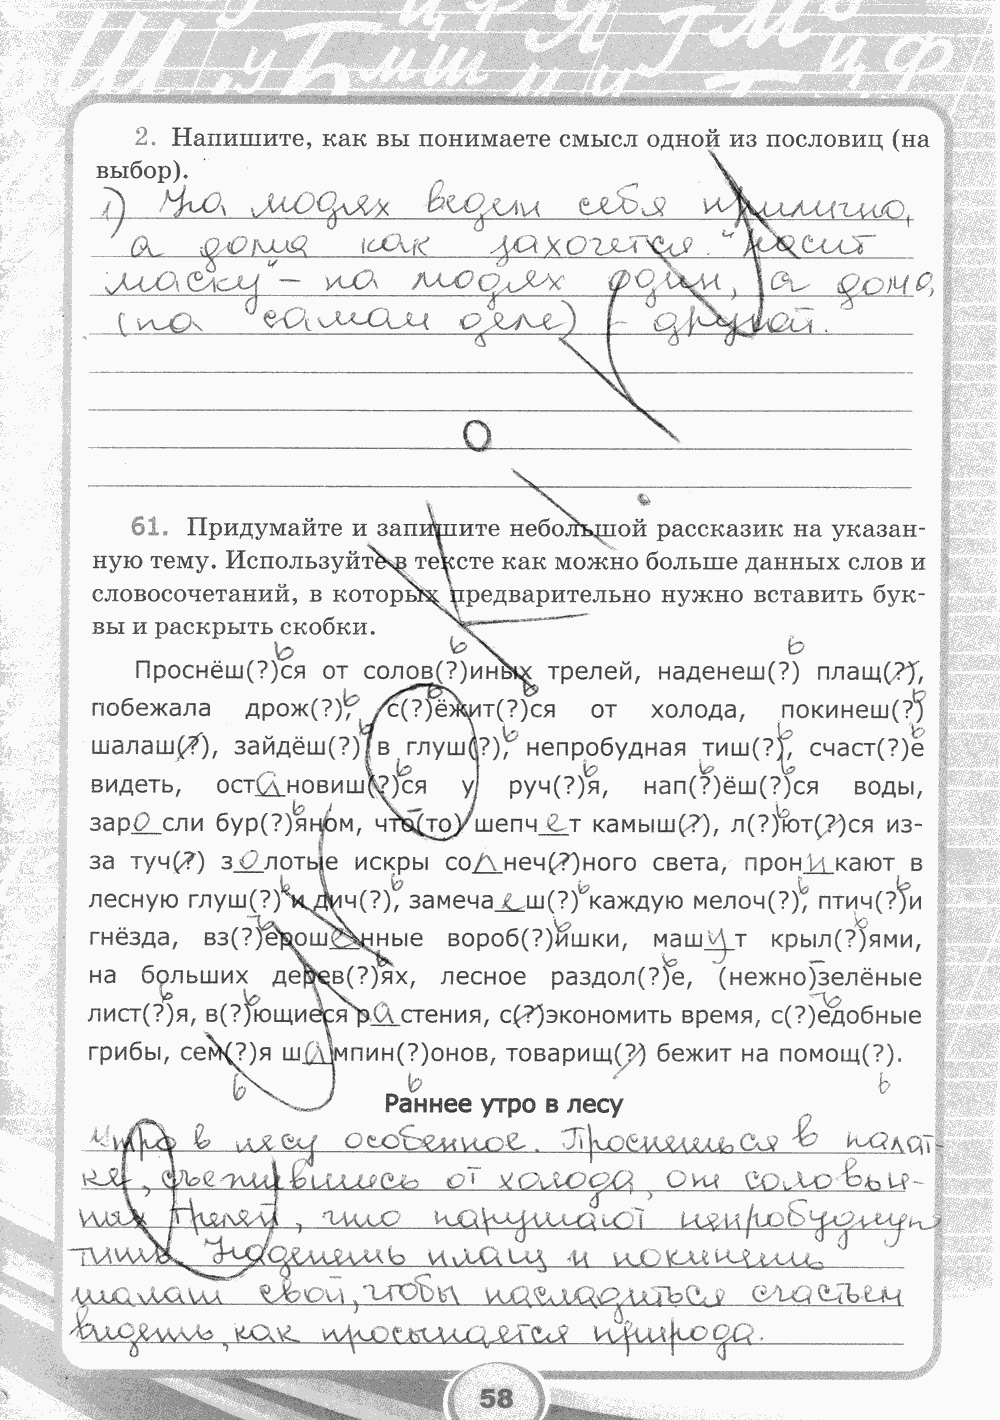 2. Напишите, как вы понимаете смысл одной из пословиц (на
выбор).
1) На людях ведем себя прилично,
а дома как захочется. "Носит
маску" – на людях один, а дома
(на самом деле) – другой.
61. Придумайте и запишите небольшой рассказик на указан-
ную тему. Используйте в тексте как можно больше данных слов и
словосочетаний, в которых предварительно нужно вставить бук-
вы и раскрыть скобки.
Проснёш(?)ся от солов(?)иных трелей, наденеш(?) плащ(?),
побежала дрож(?), с(?)ёжит(?)ся от холода, покинеш(?)
шалаш(?), зайдёш(?) в глуш(?), непробудная тиш(?), счаст(?)е
видеть, остановиш(?)ся у руч(?)я, нап(?)ёш(?)ся воды,
заросли бур(?)яном, что(то) шепчет камыш(?), л(?)ют(?)ся из-
за туч(?) золотые искры солнеч(?)ного света, проникают в
лесную глуш(?) и дич(?), замечаеш(?) каждую мелоч(?), птич(?)и
гнёзда, вз(?)ерошенные вороб(?)ишки, машут крыл(?)ями,
на больших дерев(?)ях, лесное раздол(?)е, (нежно)зелёные
лист(?)я, в(?)ющиеся растения, с(?)экономить время, с(?)едобные
грибы, сем(?)я шампин(?)онов, товарищ(?) бежит на помощ(?).
Раннее утро в лесу
Утро в лесу особенное. Проснешься в палат-
ке, съежившись от холода, от соловьи-
ных трелей, что нарушают непробудную
тишь. Наденешь плащ и покинешь
шалаш свой, чтобы насладиться счастьем
видеть, как просыпается природа.
58